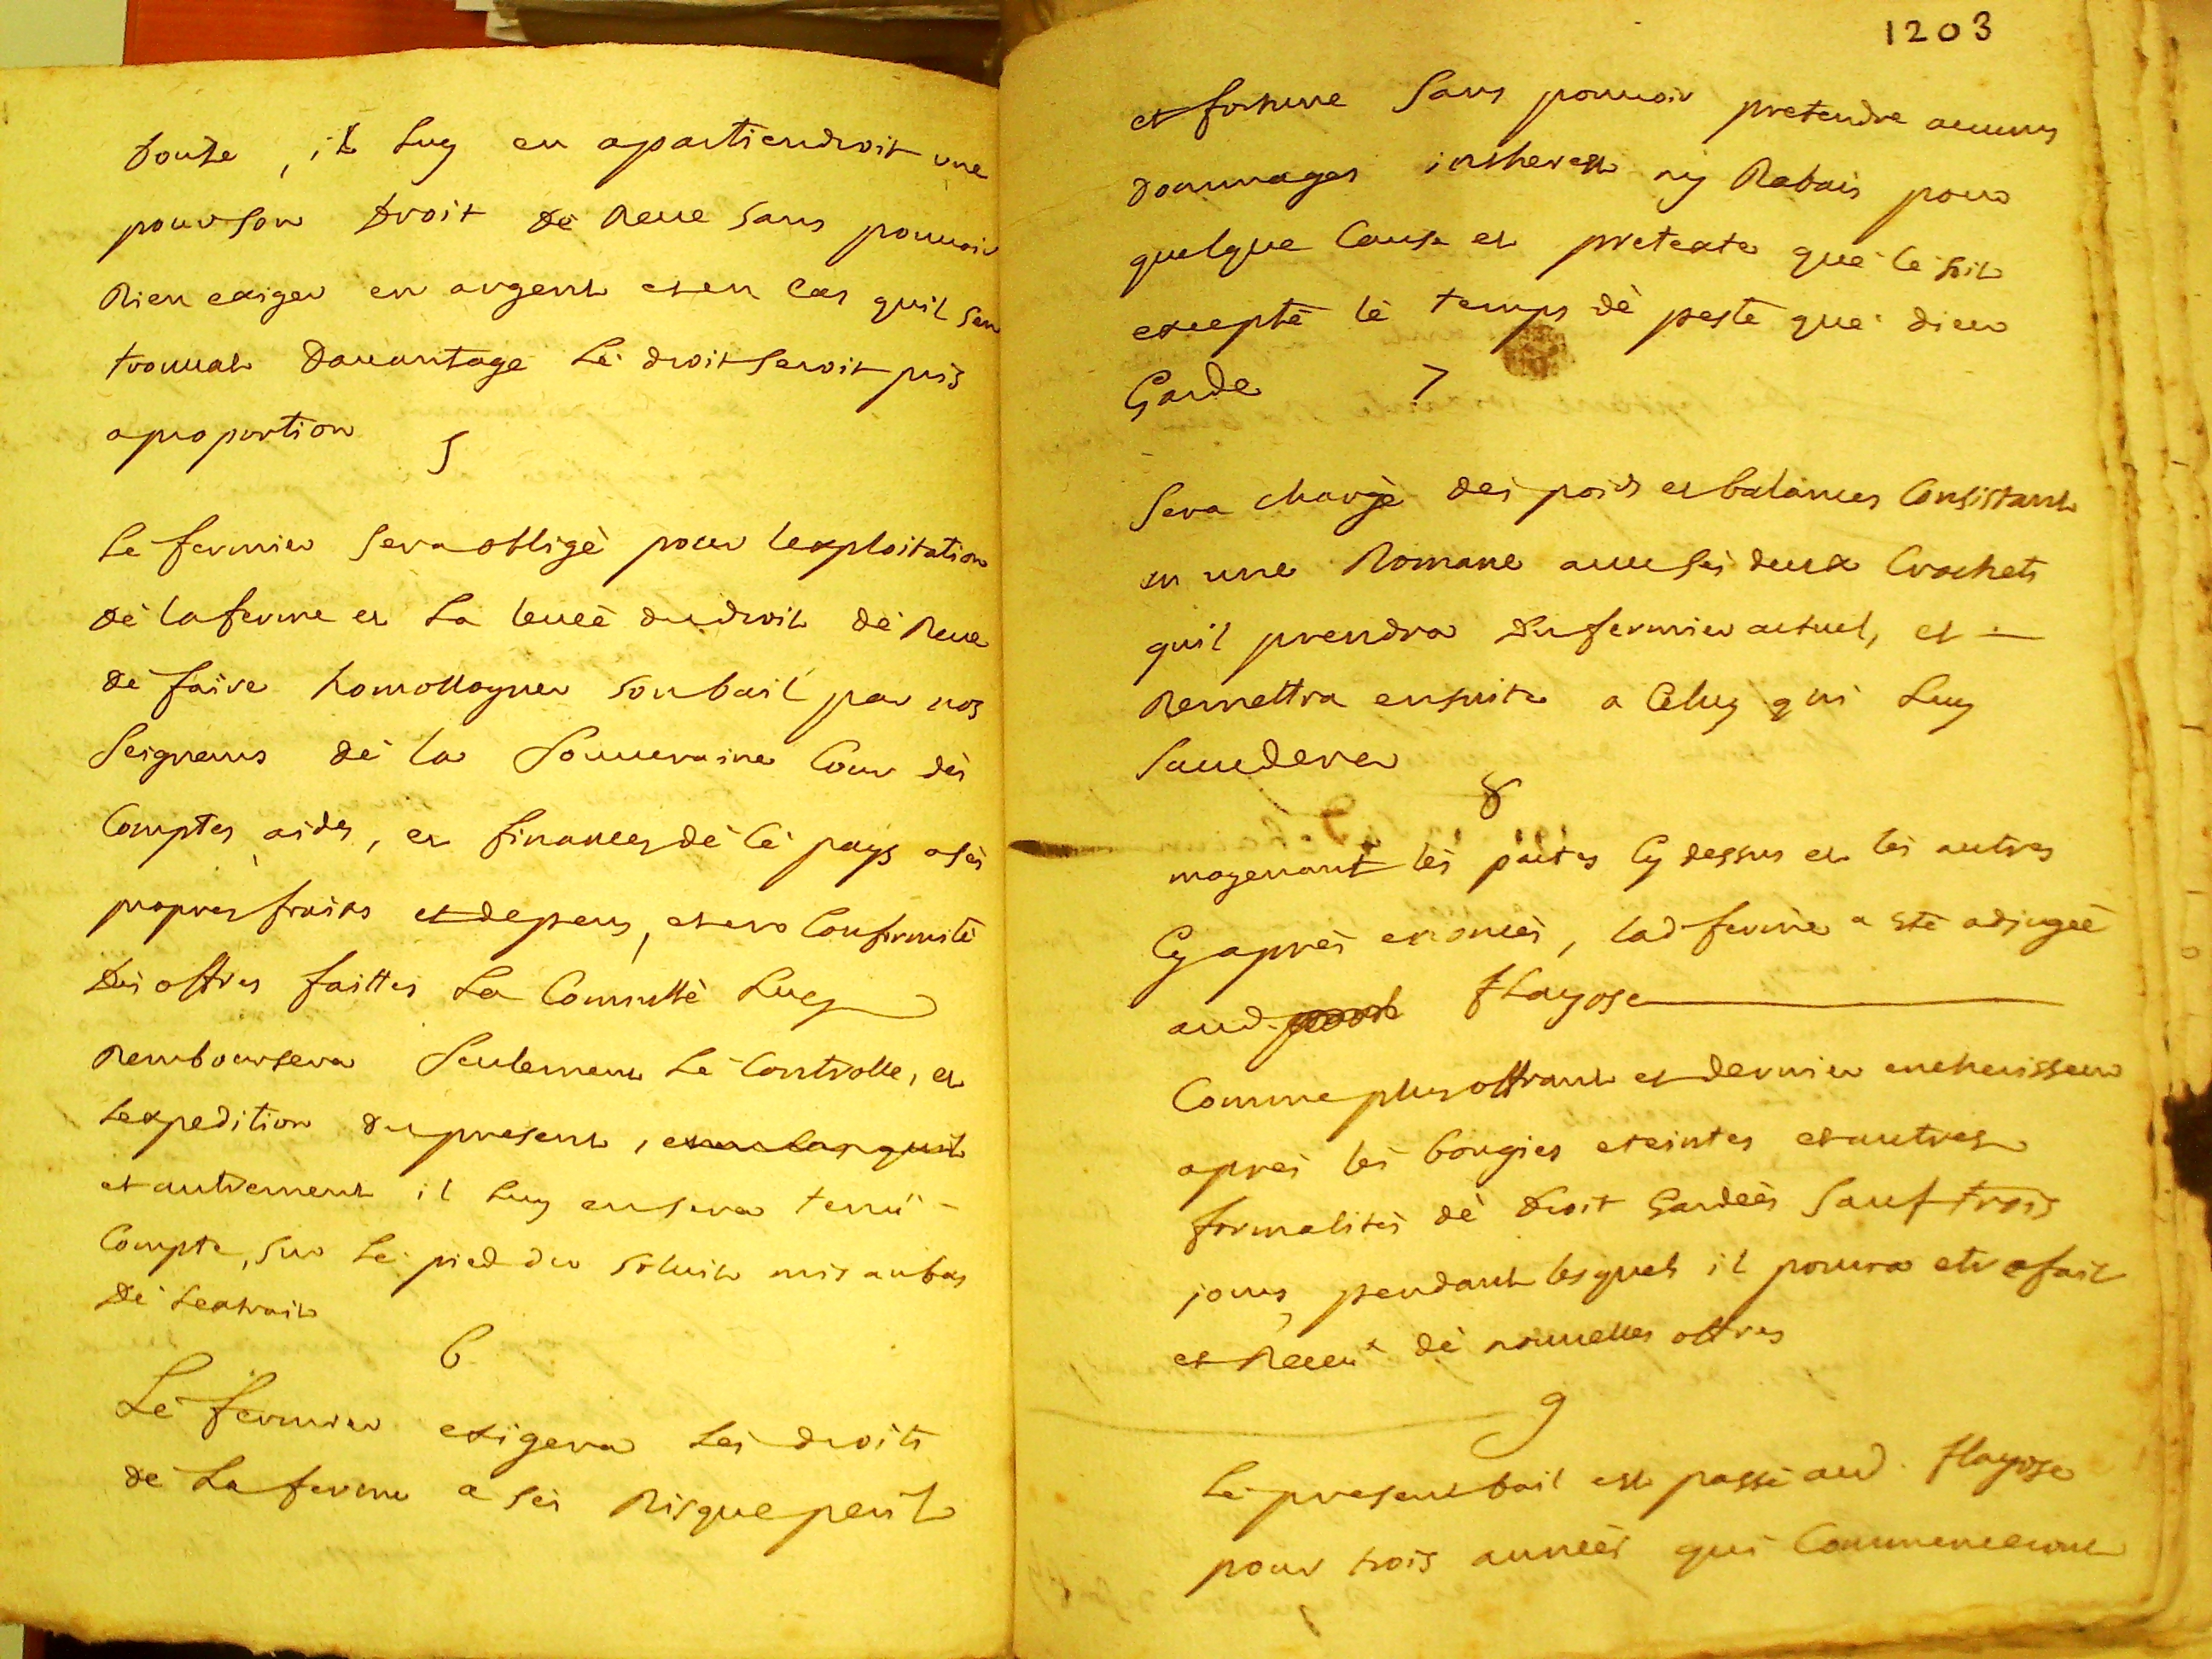 douse, il luy en apartiendroit une
pour son droit de Reue sans pouuoir
Rien exiger en argent et en cas quil sen
trouuat dauantage le droit seroit pris
a proportion
5
Le fermier sera obligé pour lexploitation
de la ferme et la leueé du droit de Reue
de faire homolloguer son bail par nos
Seigneurs de la Souueraine Cour des
Comptes aides, et finances de cé pays a ses
propres fraix et depens, et en Conformité
des offres faittes la Comuttè luy
Remboursera seulement le Controlle, et
lexpedition du present, et en cas quil
et autrement il luy en sera tenu -
Compte, sur le pied du soluit mis au bas
de lextrait
6
Le fermier exigera les droits
de la ferme a ses Risque peril
1203
et fortune sans pouuoir pretendre aucuns
dommages interest ny Rabais pour
quelque Cause et pretexte que ce soit
excepté le temps de peste que dieu
Garde
7
Sera chargé des poids et balances Consistant
en une Romane auec ses deux Crochets
quil prendra du fermier actuel, et -
Remettra ensuite a Celuy qui luy
succedera
8
moyenant les pactes Cy dessus et les autres
Cy aprés enoncés, lad ferme a esté adjugeé
aud. flayose
Comme plus offrant et dernier encherisseur
aprés les bougies eteintes et autres
formalités de droit Gardeés sauf trois
jours, pendant lesquels il pourra etre fait
et Receu de nouuelles offres
9
Le present bail est passé aud. flayose
pour trois années qui Commenceront